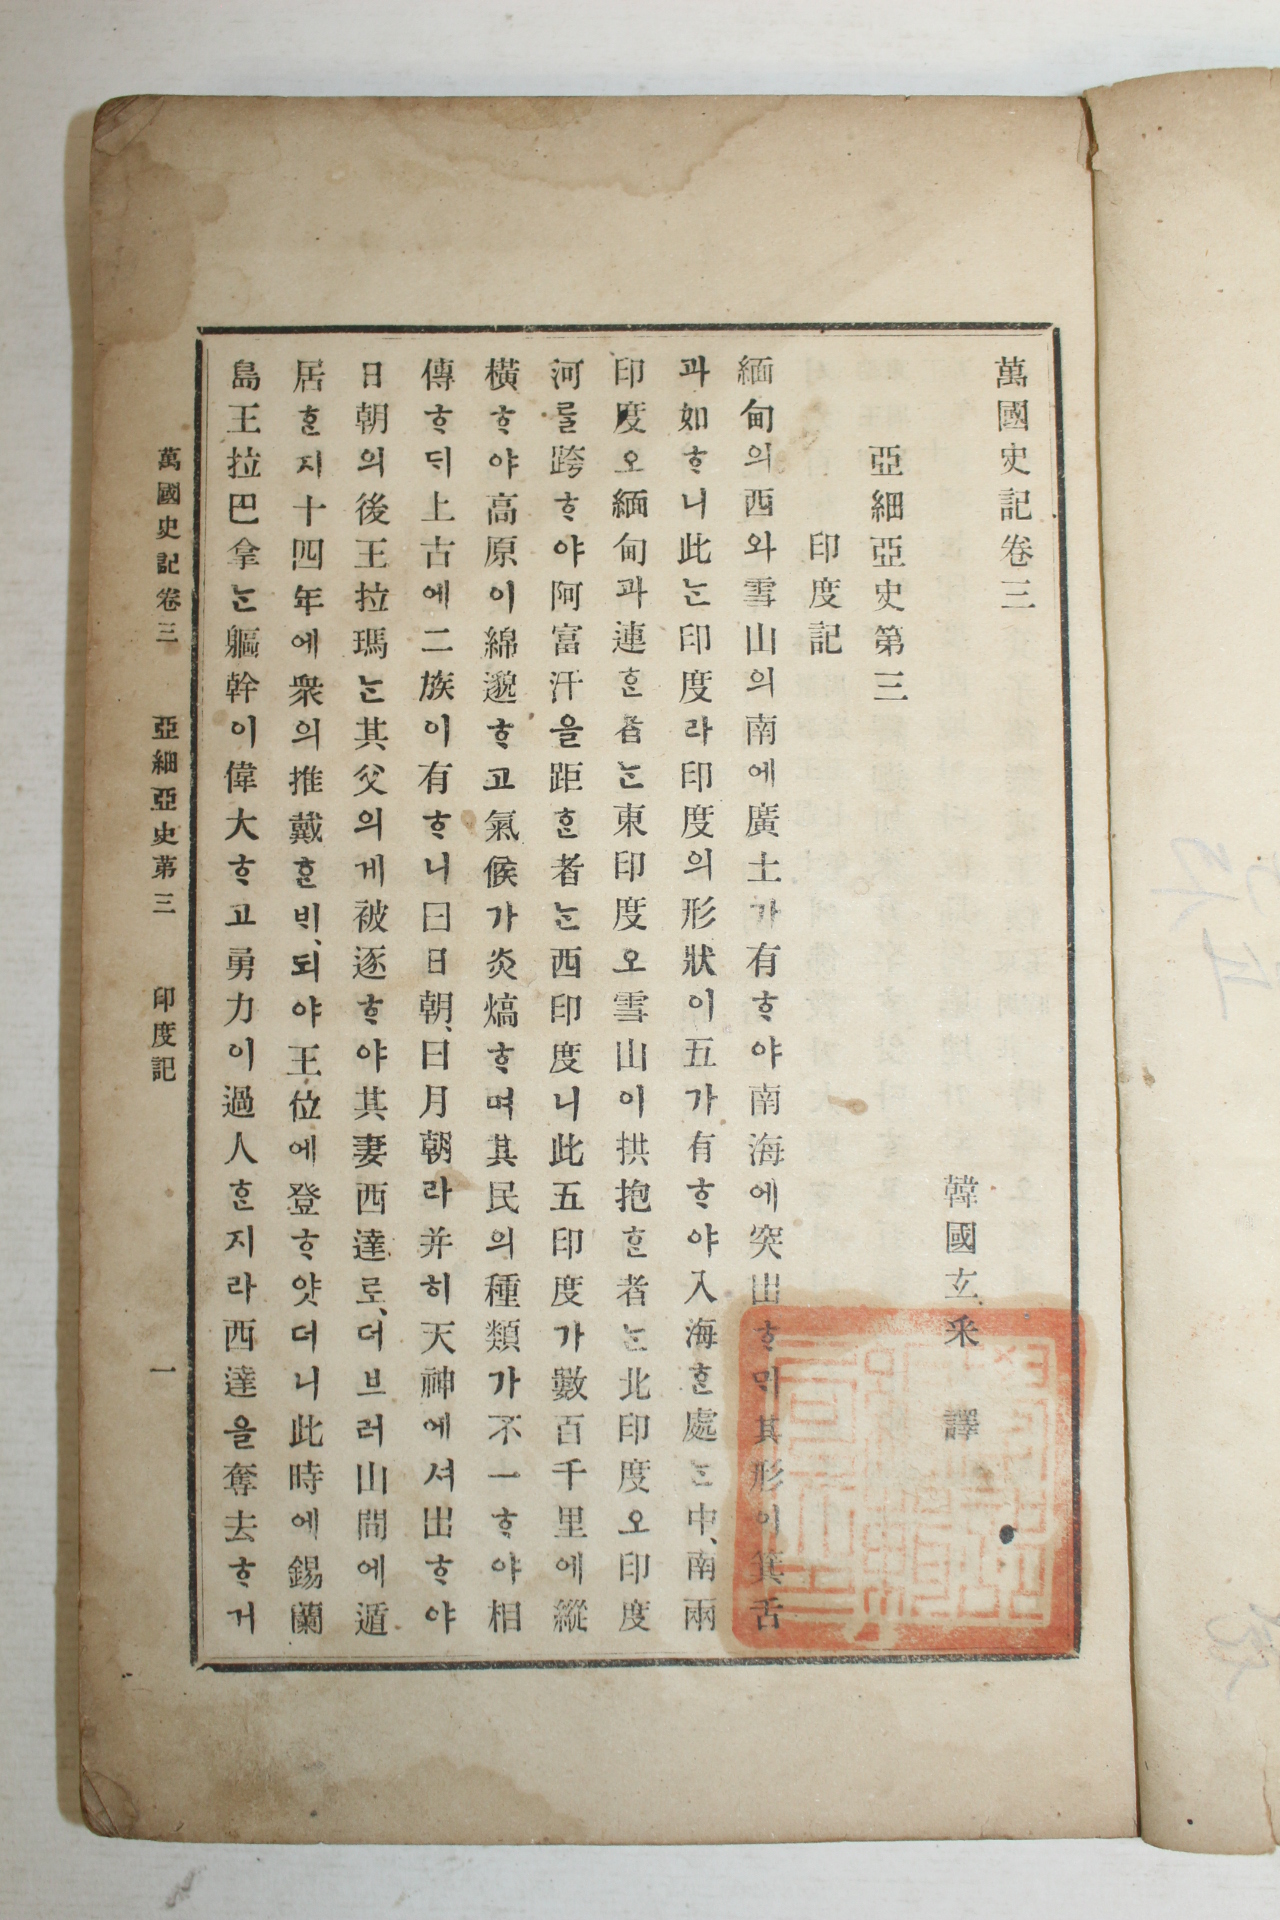 萬國史記卷三
韓國玄采 譯
亞細亞史第三
印度記
緬甸의西와雪山의南에廣土가有ᄒᆞ야南海에突出ᄒᆞᄆᆡ其形이箕舌
과如ᄒᆞ니此ᄂᆞᆫ印度라印度의形狀이五가有ᄒᆞ야入海ᄒᆞᆫ處ᄂᆞᆫ中、南兩
印度오緬甸과連ᄒᆞᆫ者ᄂᆞᆫ東印度오雪山이拱抱ᄒᆞᆫ者ᄂᆞᆫ北印度오印度
河ᄅᆞᆯ跨ᄒᆞ야阿富汗을距ᄒᆞᆫ者ᄂᆞᆫ西印度니此五印度가數百千里에縱
橫ᄒᆞ야高原이綿邈ᄒᆞ고氣候가炎熇ᄒᆞ며其民의種類가不一ᄒᆞ야相
傳ᄒᆞᄃᆡ上古에二族이有ᄒᆞ니曰日朝、曰月朝라并히天神에셔出ᄒᆞ야
日朝의後王拉瑪ᄂᆞᆫ其父의게被逐ᄒᆞ야其妻西達로、더브러山間에遁
居ᄒᆞᆫ지十四年에衆의推戴ᄒᆞᆫᄇᆡ、되야王位에登ᄒᆞ얏더니此時에錫蘭
島王拉巴拿ᄂᆞᆫ軀幹이偉大ᄒᆞ고勇力이過人ᄒᆞᆫ지라西達을奪去ᄒᆞ거
萬國史記卷三 亞細亞史第三 印度記 一